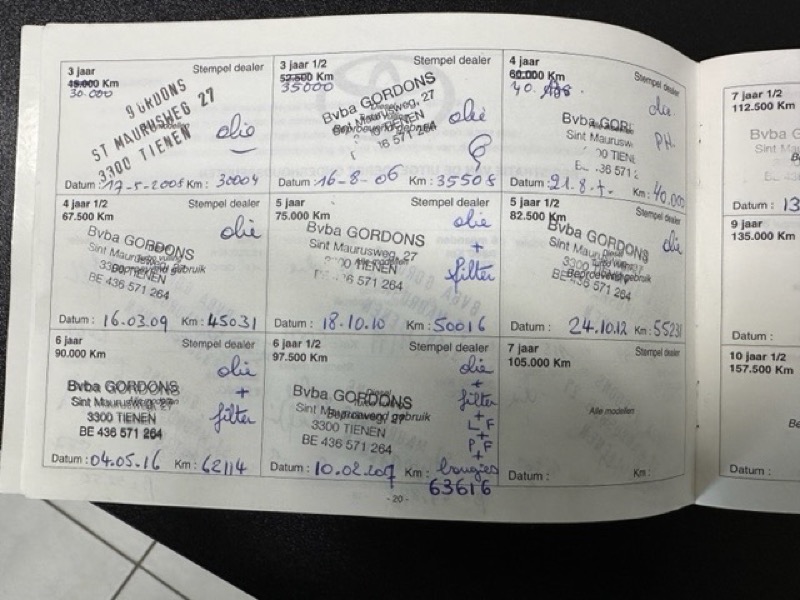 3 jaar
Stempel dealer
45.000 Km
30.000
GORDONS
ST MAURUSWEG 27
3300 TIENEN
olie
Datum : 17-5-2005 Km : 30004
3 jaar 1/2
Stempel dealer
52.500 Km
35000
Bvba GORDONS
Sint Maurusweg, 27
TIENEN
436 571 264
olie
Datum : 16-8-06 Km : 35505
4 jaar
Stempel dealer
60.000 Km
40.
Bvba GOR
Sint Mauru
TIENE
436 571
olie
PH.
Datum : 21.8.7. Km : 40.000
4 jaar 1/2
Stempel dealer
67.500 Km
Bvba GORDONS
Sint Maurusweg, 27
Beproevend gebruik
BE 436 571 264
olie
Datum : 16.03.09 Km : 45031
5 jaar
Stempel dealer
75.000 Km
Bvba GORDONS
Sint Maurusweg, 27
Alle modellen
TIENEN
BE 436 571 264
olie
+
filter
Datum : 18.10.10 Km : 50016
5 jaar 1/2
Stempel dealer
82.500 Km
Bvba GORDONS
Diesel
Sint Maurusweg, 27
Beproevend gebruik
BE 436 571 264
olie
Datum : 24.10.12 Km : 55231
6 jaar
Stempel dealer
90.000 Km
Bvba GORDONS
Sint Maurusweg, 27
3300 TIENEN
BE 436 571 264
olie
+
filter
Datum : 04.05.16 Km : 62114
6 jaar 1/2
Stempel dealer
97.500 Km
Diesel
Bvba GORDONS
Sint Maurusweg, 27
Beproevend gebruik
3300 TIENEN
BE 436 571 264
olie
+
filter
+
L F
+
P F
+
bougies
Datum : 10.02. Km :
63616
7 jaar
Stempel dealer
105.000 Km
Alle modellen
Datum : Km :
- 20 -
7 jaar 1/2
112.500 Km
Bvba G
Sint Ma
Datum : 13
9 jaar
135.000 Km
Datum :
10 jaar 1/2
157.500 Km
Be
Datum :